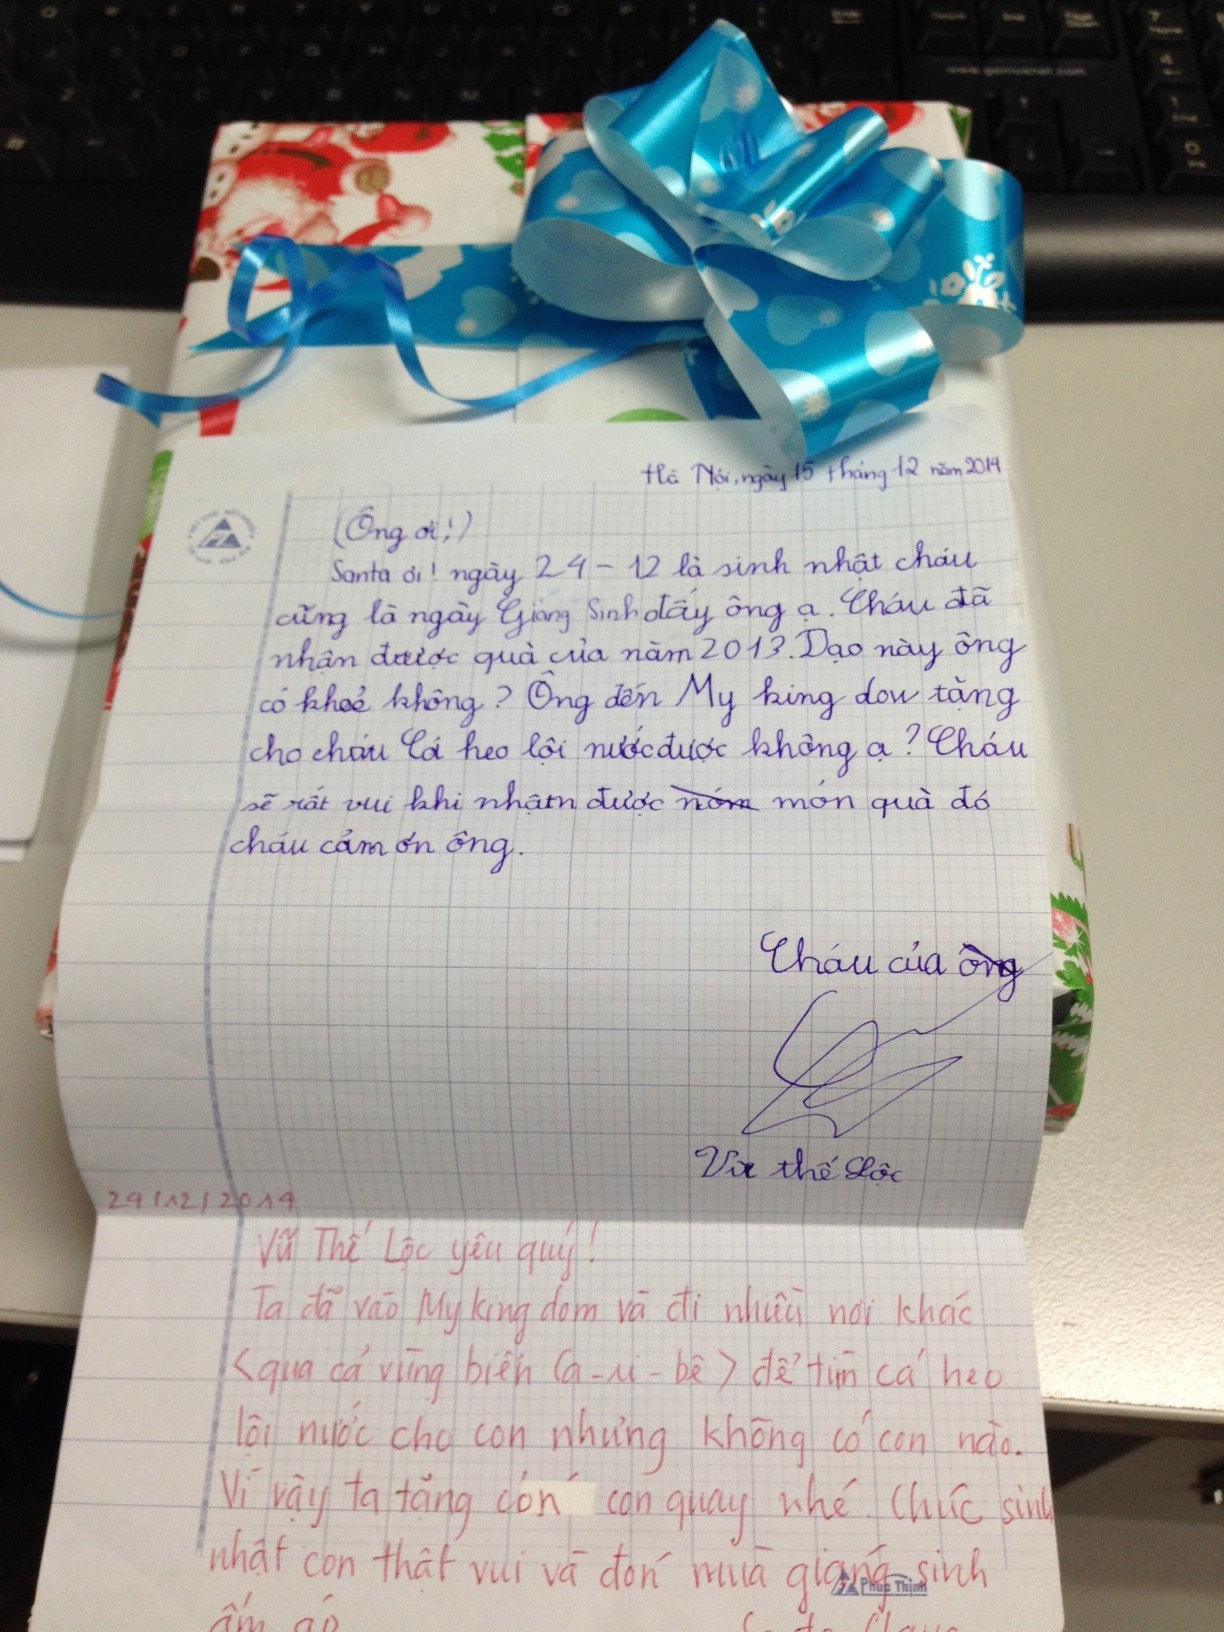 www.geniusnet.com
Hà Nội, ngày 15 tháng 12 năm 2014
(Ông ơi!)
Santa ơi! ngày 24-12 là sinh nhật cháu
cũng là ngày Giáng Sinh đấy ông ạ. Cháu đã
nhận được quà của năm 2013. Dạo này ông
có khoẻ không? Ông đến My king dow tặng
cho cháu Cá heo lội nước được không ạ? Cháu
sẽ rất vui khi nhậtn được nóm món quà đó
cháu cảm ơn ông.
Cháu của ông
Vũ thế Lộc
24/12/2014
Vũ Thế Lộc yêu quý!
Ta đã vào My king dom và đi nhiều nơi khác
<qua cả vùng biển Ca-ri-bê> để tìm cá heo
lội nước cho con nhưng không có con nào.
Vì vậy ta tặng con con quay nhé. Chúc sinh
nhật con thật vui và đón mùa giáng sinh
Phúc Thịnh
ấm áp